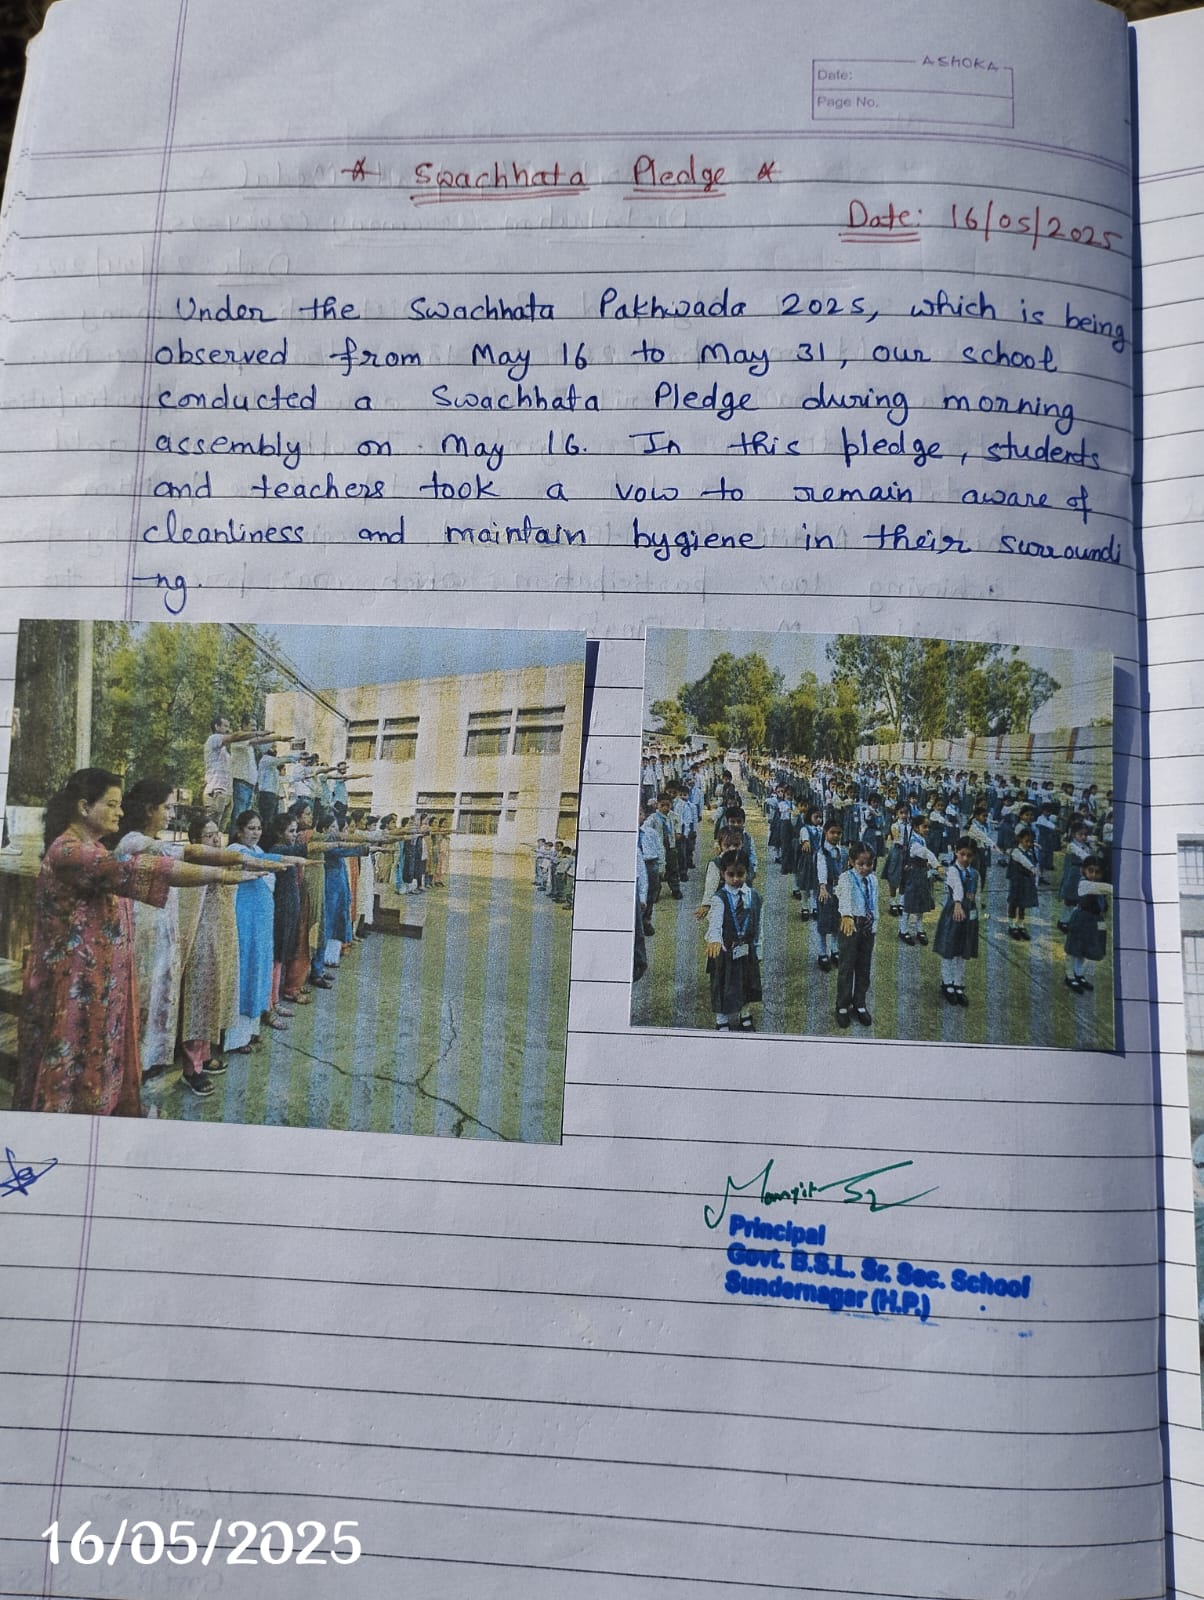 ASHOKA
Date:
Page No.
* Swachhata Pledge *
Date: 16/05/2025
Under the Swachhata Pakhwada 2025, which is being
observed from May 16 to May 31, our school
conducted a Swachhata Pledge during morning
assembly on May 16. In this pledge, students
and teachers took a vow to remain aware of
cleanliness and maintain hygiene in their surroundi
-ng.
Principal
Govt. B.S.L. Sr. Sec. School
Sundernagar (H.P.)
16/05/2025